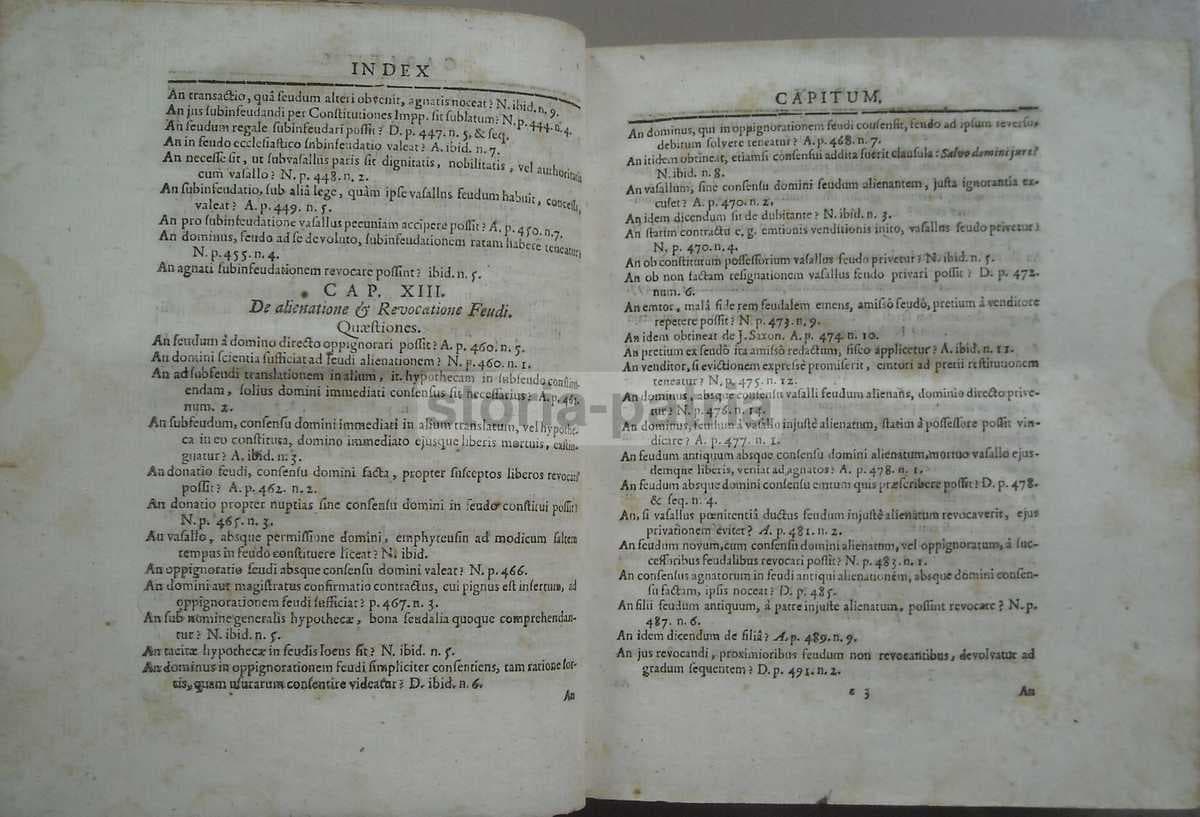 INDEX
An transactio, quâ feudum alteri obvenit, agnatis noceat? N. ibid. n. 9.
An jus subinfeudandi per Constitutiones Impp. sit sublatum? N. p. 444. n. 4.
An feudum regale subinfeudari possit? D. p. 447. n. 5. & seq.
An in feudo ecclesiastico subinfeudatio valeat? A. ibid. n. 7.
An necesse sit, ut subvasallus paris sit dignitatis, nobilitatis, vel authoritatis
cum vasallo? N. p. 448. n. 2.
An subinfeudatio, sub aliâ lege, quàm ipse vasallus feudum habuit, concessa,
valeat? A. p. 449. n. 5.
An pro subinfeudatione vasallus pecuniam accipere possit? A. p. 450. n. 7.
An dominus, feudo ad se devoluto, subinfeudationem ratam habere teneatur?
N. p. 455. n. 4.
An agnati subinfeudationem revocare possint? ibid. n. 5.
CAP. XIII.
De alienatione & Revocatione Feudi.
Quæstiones.
An feudum à domino directo oppignorari possit? A. p. 460. n. 5.
An domini scientia sufficiat ad feudi alienationem? N. p. 460. n. 1.
An ad subfeudi translationem in alium, it. hypothecam in subfeudo constituendam,
endam, solius domini immediati consensus sit necessarius? A. p. 461.
num. 2.
An subfeudum, consensu domini immediati in alium translatum, vel hypotheca
ca in eo constituta, domino immediato ejusque liberis mortuis, extinguatur
guatur? A. ibid. n. 3.
An donatio feudi, consensu domini facta, propter susceptos liberos revocari
possit? A. p. 462. n. 2.
An donatio propter nuptias sine consensu domini in feudo constitui possit?
N. p. 465. n. 3.
An vasallo, absque permissione domini, emphyteusin ad modicum saltem
tempus in feudo constituere liceat? N. ibid.
An oppignoratio feudi absque consensu domini valeat? N. p. 466.
An domini aut magistratus confirmatio contractus, cui pignus est insertum, ad
oppignorationem feudi sufficiat? p. 467. n. 3.
An sub nomine generalis hypothecæ, bona feudalia quoque comprehendan-
tur? N. ibid. n. 5.
An tacitæ hypothecæ in feudis locus sit? N. ibid. n. 5.
An dominus in oppignorationem feudi simpliciter consentiens, tam ratione sor-
tis, quam usurarum consentire videatur? D. ibid. n. 6.
An
CAPITUM.
An dominus, qui in oppignorationem feudi consensit, feudo ad ipsum reverso,
debitum solvere teneatur? A. p. 468. n. 7.
An itidem obtineat, etiamsi consensui addita fuerit clausula: Salvo domini jure?
N. ibid. n. 8.
An vasallum, sine consensu domini feudum alienantem, justa ignorantia ex-
cuset? A. p. 470. n. 2.
An idem dicendum sit de dubitante? N. ibid. n. 3.
An statim contractu e. g. emtionis venditionis inito, vasallus feudo privetur?
N. p. 470. n. 4.
An ob constitutum possessorium vasallus feudo privetur? N. ibid. n. 5.
An ob non factam resignationem vasallus feudo privari possit? D. p. 472.
num. 6.
An emtor, malâ fide rem feudalem emens, amisso feudô, pretium à venditore
repetere possit? N. p. 473. n. 9.
An idem obtineat de J. Saxon. A. p. 474. n. 10.
An pretium ex feudo ita amisso redactum, fisco applicetur? A. ibid. n. 11.
An venditor, si evictionem expressè promiserit, emtori ad pretii restitutionem
teneatur? N. p. 475. n. 12.
An dominus, absque consensu vasalli feudum alienans, dominio directo prive-
tur? N. p. 476. n. 14.
An dominus, feudum à vasallo injustè alienatum, statim à possessore possit vin-
dicare? A. p. 477. n. 1.
An feudum antiquum absque consensu domini alienatum, mortuo vasallo ejus-
demque liberis, veniat ad agnatos? A. p. 478. n. 1.
An feudum absque domini consensu emtum quis præscribere possit? D. p. 478.
& seq. n. 4.
An, si vasallus pœnitentiâ ductus feudum injustè alienatum revocaverit, ejus
privationem evitet? A. p. 481. n. 2.
An feudum novum, cum consensu domini alienatum, vel oppignoratum, à suc-
cessoribus feudalibus revocari possit? N. p. 483. n. 1.
An consensus agnatorum in feudi antiqui alienationem, absque domini consen-
su factam, ipsis noceat? D. p. 485.
An filii feudum antiquum, à patre injuste alienatum, possint revocare? N. p.
487. n. 6.
An idem dicendum de filiâ? A. p. 489. n. 9.
An jus revocandi, proximioribus feudum non revocantibus, devolvatur ad
gradum sequentem? D. p. 491. n. 2.
e 3
An
storia-patria